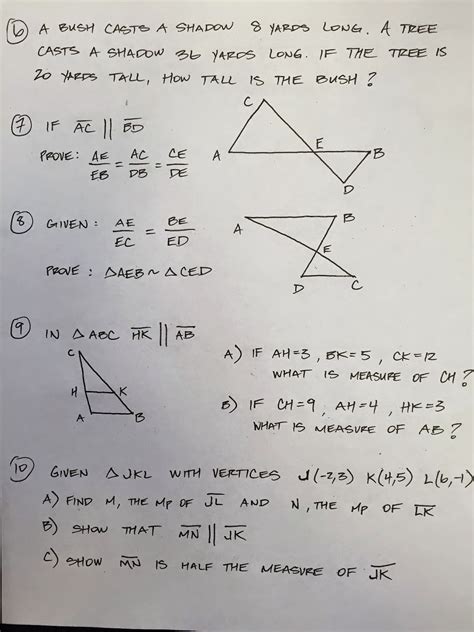 6 A BUSH CASTS A SHADOW 8 YARDS LONG. A TREE
CASTS A SHADOW 36 YARDS LONG. IF THE TREE IS
20 YARDS TALL, HOW TALL IS THE BUSH?
7 IF AC || BD
PROVE: AE/EB = AC/DB = CE/DE
C
A
E
B
D
8 GIVEN: AE/EC = BE/ED
PROVE: △AEB ~ △CED
A
B
E
D
C
9 IN △ABC HK || AB
C
H
K
A
B
A) IF AH=3, BK=5, CK=12
WHAT IS MEASURE OF CH?
B) IF CH=9, AH=4, HK=3
WHAT IS MEASURE OF AB?
10 GIVEN △JKL WITH VERTICES J(-2,3) K(4,5) L(6,-1)
A) FIND M, THE MP OF JL AND N, THE MP OF LK
B) SHOW THAT MN || JK
C) SHOW MN IS HALF THE MEASURE OF JK